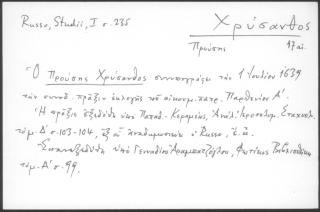 Russo, Studii, I σ. 235
Χρύσανθος
Προύσης
17 αι.
Ὁ Προύσης Χρύσανθος συνυπογράφει τὴν 1 Ἰουλίου 1639
τὴν συνοδ. πρᾶξιν ἐκλογῆς τοῦ οἰκουμ. πατρ. Παρθενίου Α΄.
Ἡ πρᾶξις ἐξεδόθη ὑπὸ Παπαδ.-Κεραμέως, Ἀνάλ. Ἱεροσολυμ. Σταχυολ.
τόμ. Δ΄ σ. 103-104, ἐξ οὗ ἀναδημοσιεύει ὁ Russo, ἔ. ἀ.
Ἐπανεξεδόθη ὑπὸ Γενναδίου Ἀραμπατζόγλου, Φωτίειος Βιβλιοθήκη
τόμ. Α΄ σ. 99.